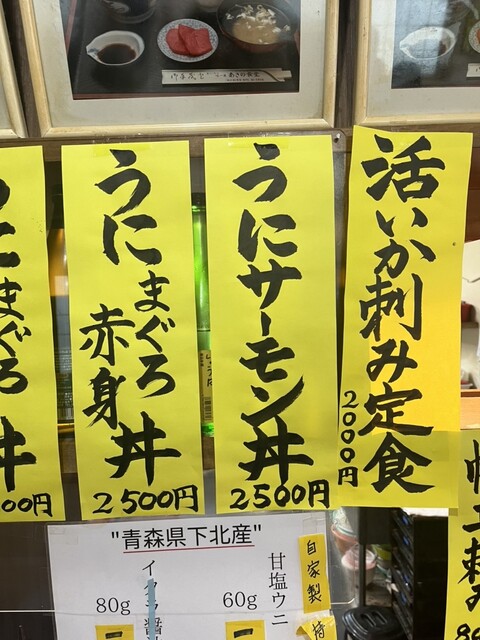 活いか刺み定食
2000円
うにサーモン丼
2500円
うにまぐろ
赤身
丼
2500円
まぐろ
丼
00円
"青森県下北産"
甘塩ウニ
60g
イクラ醤
80g
自家製